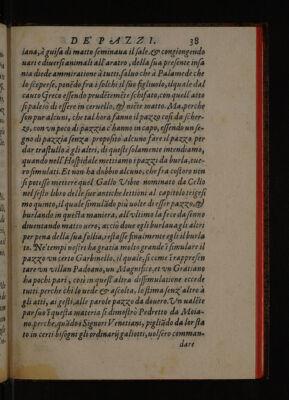 DE PAZZI. 38
iana, à guisa di matto seminaua il sale, & congiongendo
uari e diuersi animali all'aratro, della sua presente insa
nia diede ammiratione à tutti, saluo che à Palamede che
lo scoperse, ponēdo fra i solchi il suo figliuolo, il quale dal
cauto Greco essendo prudētemēte schifato, con quell'atto
si palesò di essere in ceruello, & niēte matto. Ma, perche
son pur alcuni, che tal hora fanno il pazzo cosi da scher-
zo, con vn poco di pazzia c'hanno in capo, essendo un se-
gno di pazzia senza proposito alcuno fare il pazzo per
dar trastullo à gli altri, di questi solamente intendiamo,
quando nell'Hospidale mettiamo i pazzi da burla, oue-
ro simulati. Et non ha dubbio alcuno, che fra costoro non
si potesse mettere quel Gallo Vibio nominato da Celio
nel sesto libro delle sue antiche lettioni al capitolo trigesi
mo quinto, il quale simulādo più uolte di esser pazzo, &
burlando in questa maniera, all'vltimo la fece da senno
diuentando matto uero, acciò doue egli burlaua gli altri
per pena della sua follia, restasse finalmente egli il burla
to. Ne' tempi nostri ha gratia molto grande'n simulare il
pazzo un certo Garbinello, il quale, si come'n rappresen
tare un villan Padoano, un Magnifico, et vn Gratiano
ha pochi pari, cosi in quest'altra dissimulatione eccede
tutti. perche chi lo uede & ascolta, lo stima senz'altro à
gli atti, ai gesti, alle parole pazzo da douero. Un ualēte
par suo'n questa materia si dimostrò Pedretto da Moia-
no, perche, quādo i Signori Venetiani, pigliādo da lor sta
to in certi bisogni gli ordinarij galiotti, uolsero comman-
dare